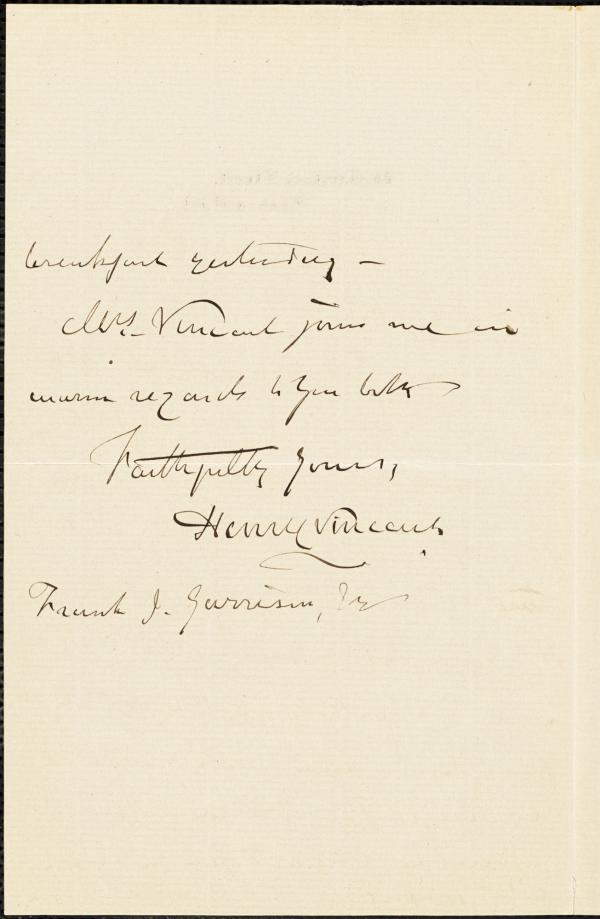 breakfast yesterday –
Mrs. Vincent joins me in
warm regards to you both
Faithfully yours,
Henry Vincent.
Frank J. Garrison, Esq